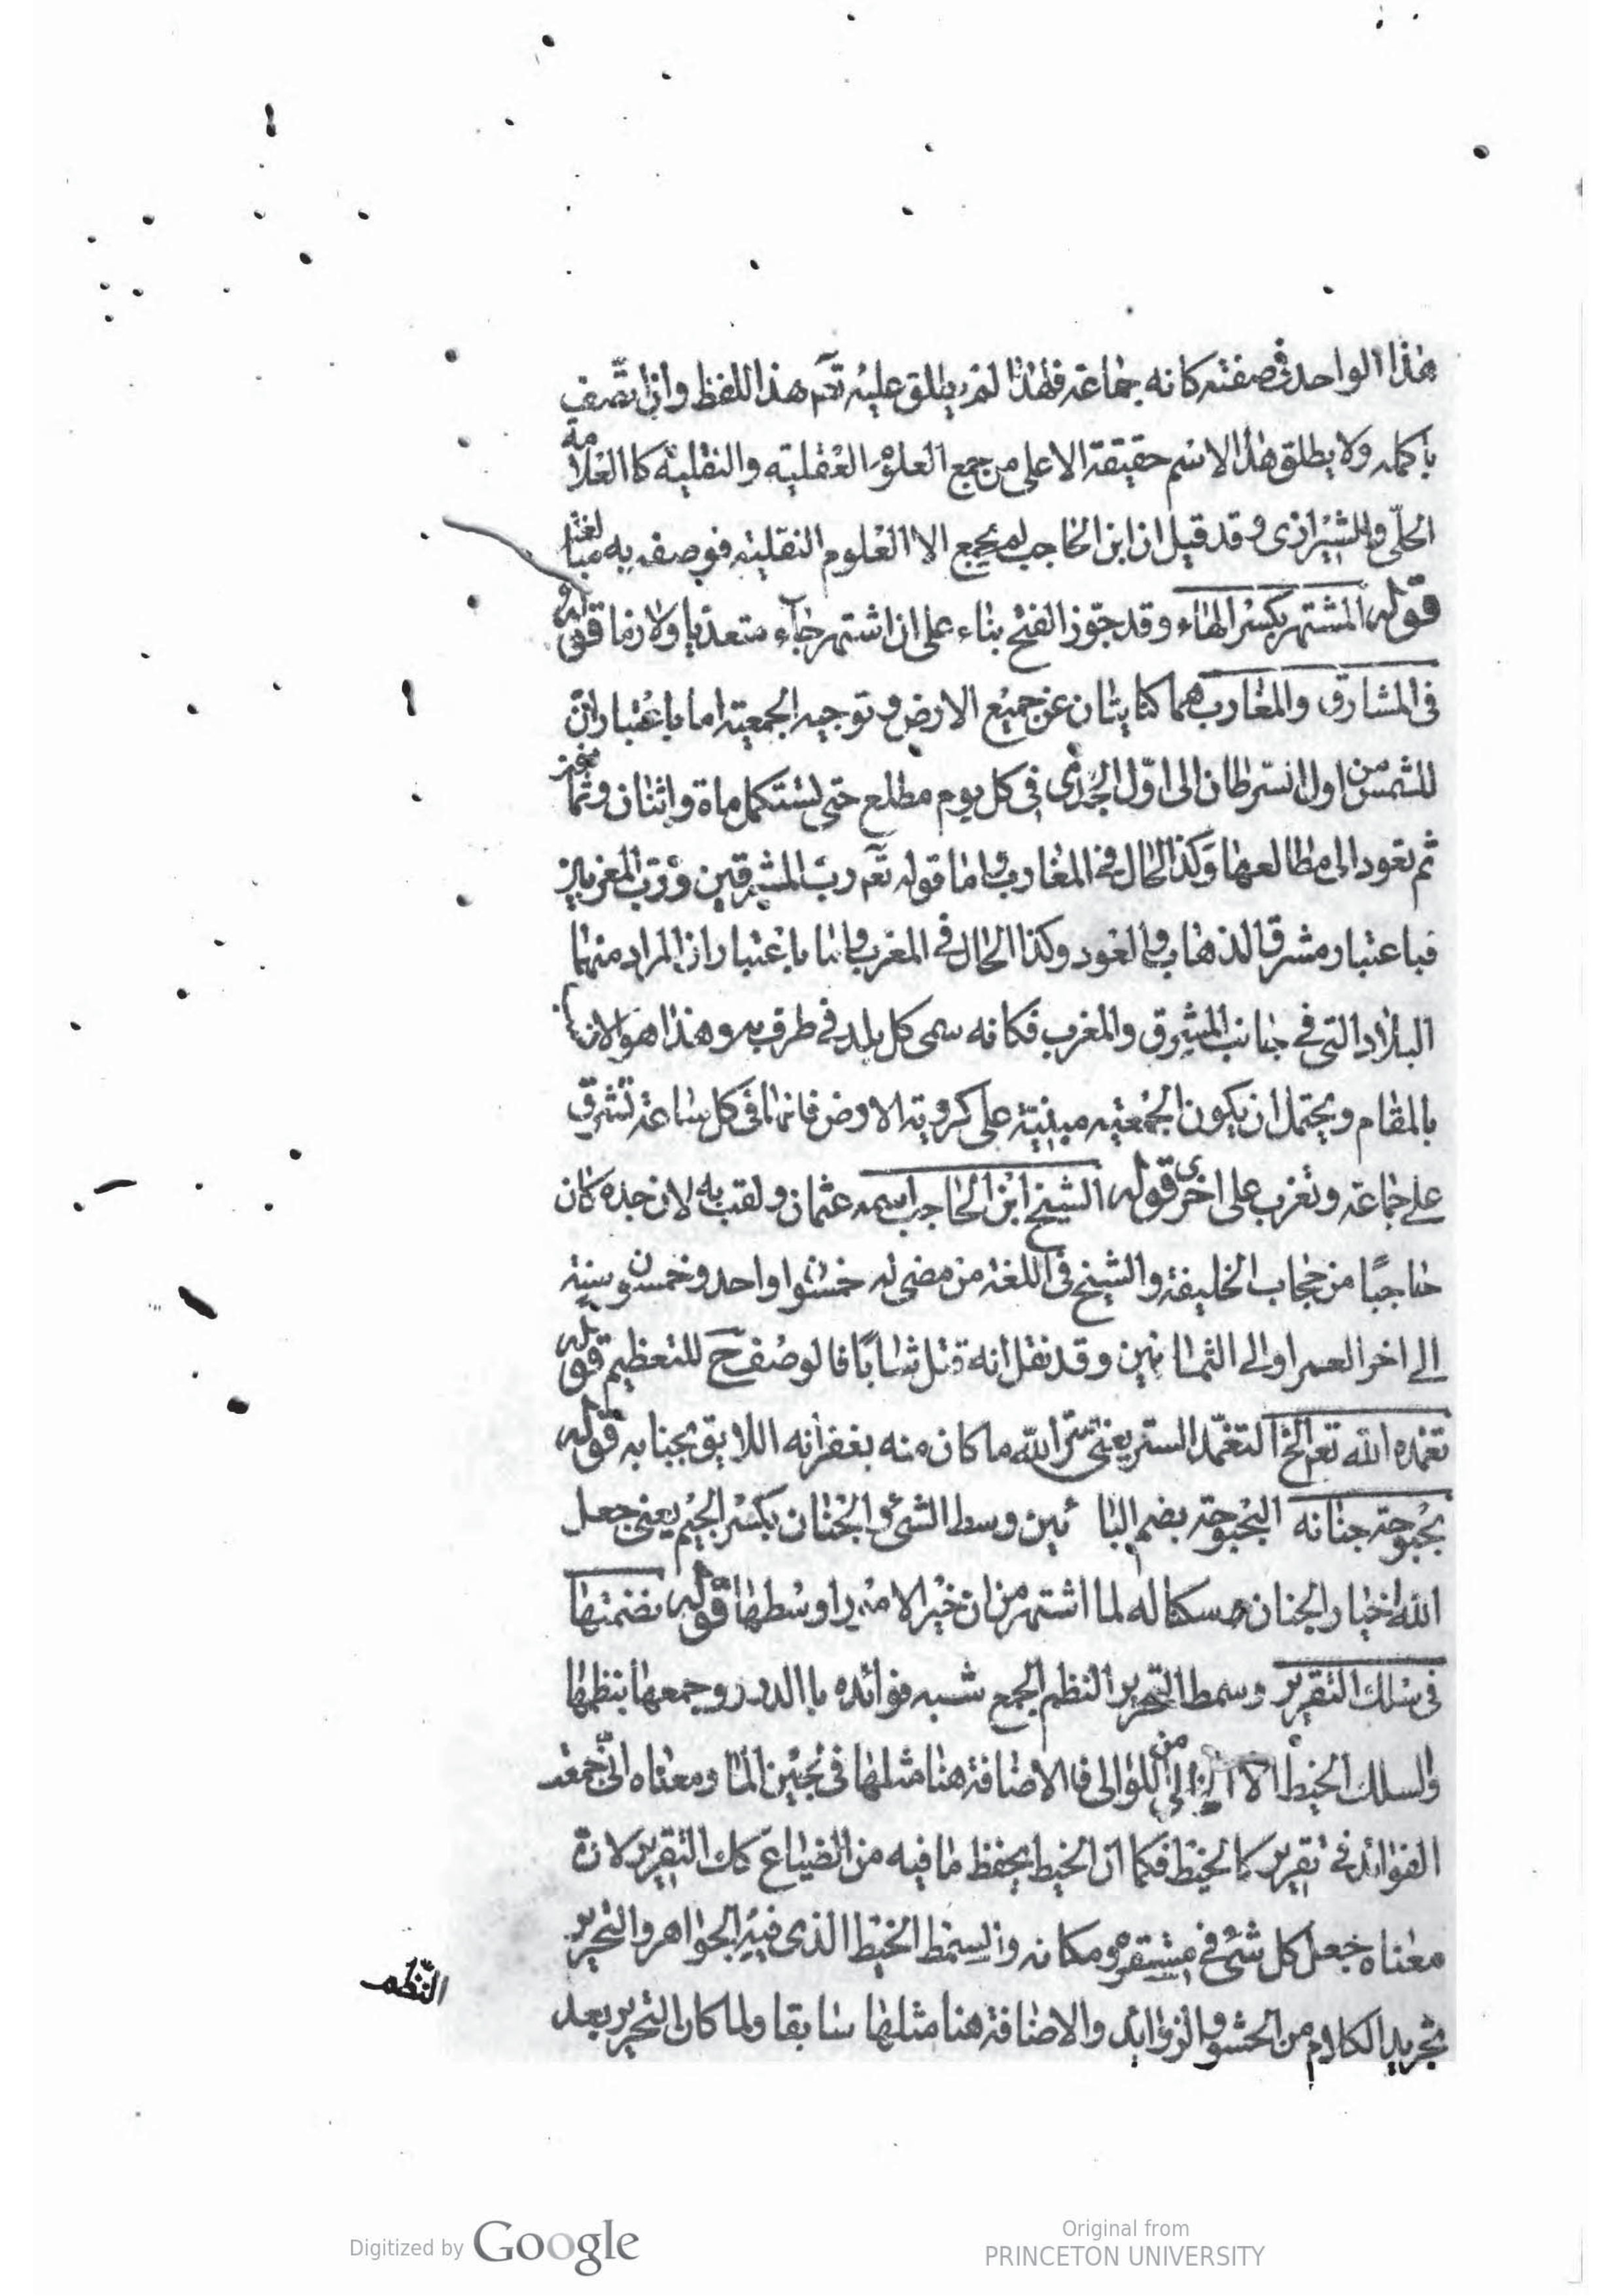 هذا الواحد في صفته كانه جماعة فلهذا لم يطلق عليه تعم هذا اللفظ وان اتصف
باكمله ولا يطلق هذا الاسم حقيقة الا على من جمع العلوم العقلية والنقلية كا العلامة
الحلّي والشيرازي وقد قيل ان ابن الحاجب لم يجمع الا العلوم النقلية فوصفه به مبالغة
قوله المشتهر بكسر الهاء وقد جوّز الفتح بناء على ان اشتهر جاء متعديا ولازما قوله
في المشارق والمغارب هما كنايتان عن جميع الارض وتوجيه الجمعية اما باعتبار ان
للشمس من اول السرطان الى اوّل الجدي في كل يوم مطلع حتى تستكمل ماة واثنان وثمانين
ثم تعود الى مطالعها وكذا الحال في المغارب واما قوله تعم ربّ المشرقين وربّ المغربين
فباعتبار مشرقي الذهاب والعود وكذا الحال في المغرب واما باعتبار ان المراد منهما
البلاد التي في جانب المشرق والمغرب فكانه سمى كل بلد في طرف به وهذا هو الانسب
بالمقام ويحتمل ان يكون الجمعية مبنية على كروية الارض فانها في كل ساعة تشرق
على جماعة وتغرب على اخرى قوله الشيخ ابن الحاجب اسمه عثمان ولقب به لان جده كان
حاجبًا من حجاب الخليفة والشيخ في اللغة من مضى له خمسون او احد وخمسون سنة
الى اخر العمر او الى الثمانين وقد نقل انه قتل شابًا فالوصف ح للتعظيم قوله
تغمده الله تعم الخ التغمّد الستر يعني ستر الله ما كان منه بغفرانه اللايق بجنابه قوله
بحبوحة جنانه البحبوحة بضم البائين وسط الشئ والجنان بكسر الجيم يعني جعل
الله اخيار الجنان مسكنا له لما اشتهر من ان خير الامور اوسطها قوله نضمتها
في سلك التقرير وسمط التحرير النظم الجمع شبه فوائده با الدرر وجمعها بنظمها
والسلك الخيط من اللؤالى فا الاضافة هنا مثلها في لجين الما ومعناه انّي جمعت
الفوائد في تقرير كالخيط فكما ان الخيط يحفظ ما فيه من الضياع كك التقرير لانّ
معناه جعل كل شئ في مستقره ومكانه والسمط الخيط الذي فيه الجواهر والتحرير
تجريد الكلام من الحشو والزوايد والاضافة هنا مثلها سابقا ولما كان التحرير بعد
النّظم
Digitized by Google
Original from
PRINCETON UNIVERSITY